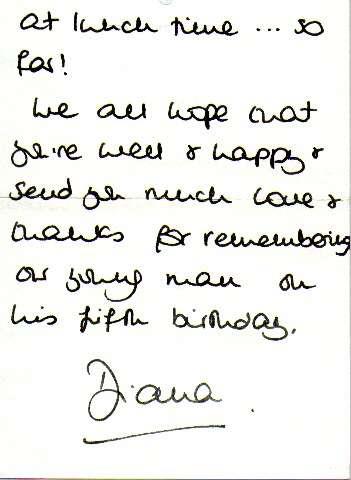 at lunch time ... so
far!
We all hope that
you're well & happy &
send you much love &
thanks for remembering
our young man on
his fifth birthday.
Diana